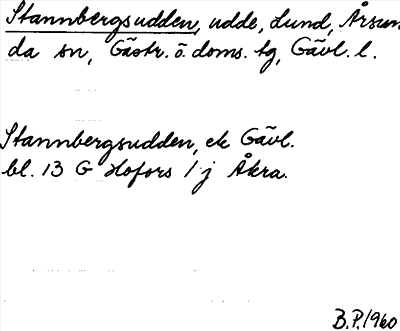 Stannbergsudden, udde, Lund, Årsun
da sn, Gästr. ö. doms. tg, Gävl. l.
Stannbergsudden, ek Gävl.
bl. 13 G Hofors 1 j Åkra.
B.P. 1960